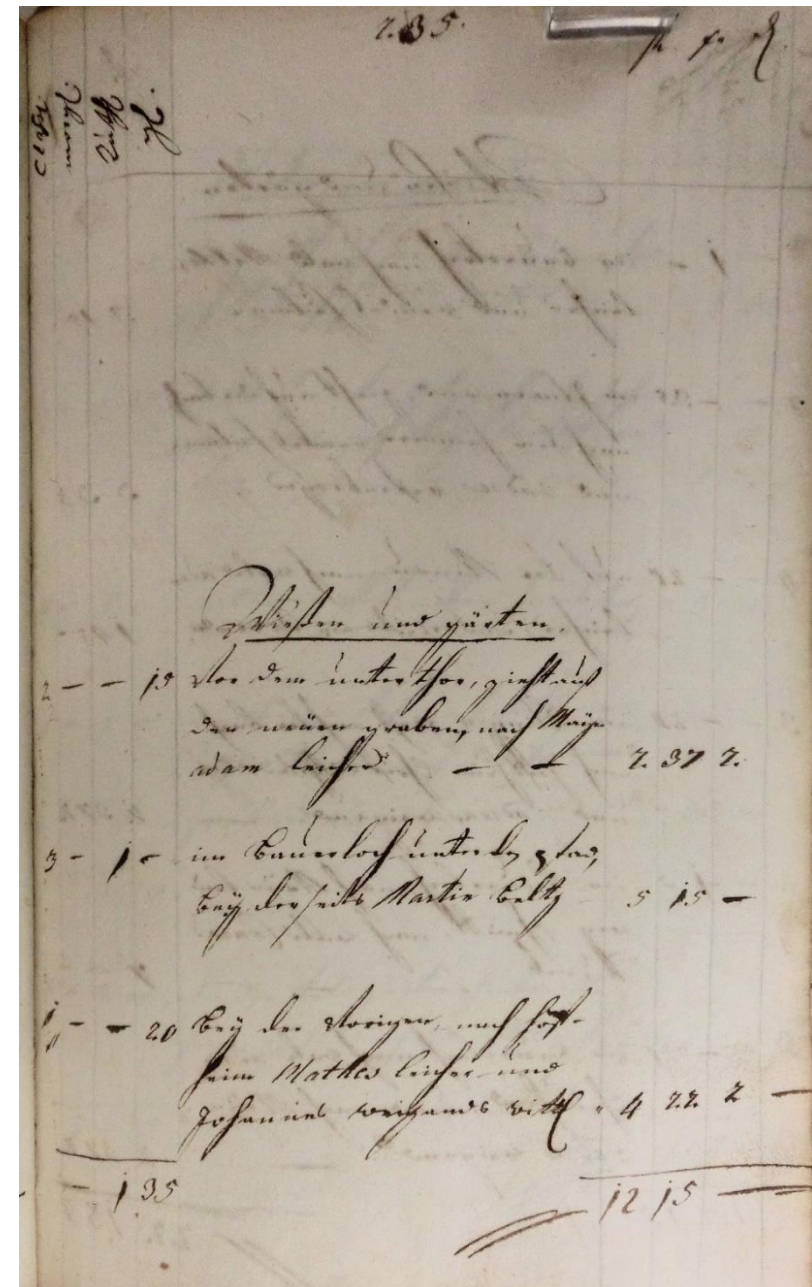 235.
Wießen und gärten.
2 — — 15 Vor dem unter thor, zieht auf
den neüen graben, nach Mayn
adam leicher — — 2. 37 2.
3 - 1 - im Bauerloch unter
bey derseits Martin Beltz 5 15 —
1 - — 20 bey der Vorigen, nach hoff-
heim Mathes leicher und
Johannes weigands witt 4 22 2 —
— 1 35 12 15 —